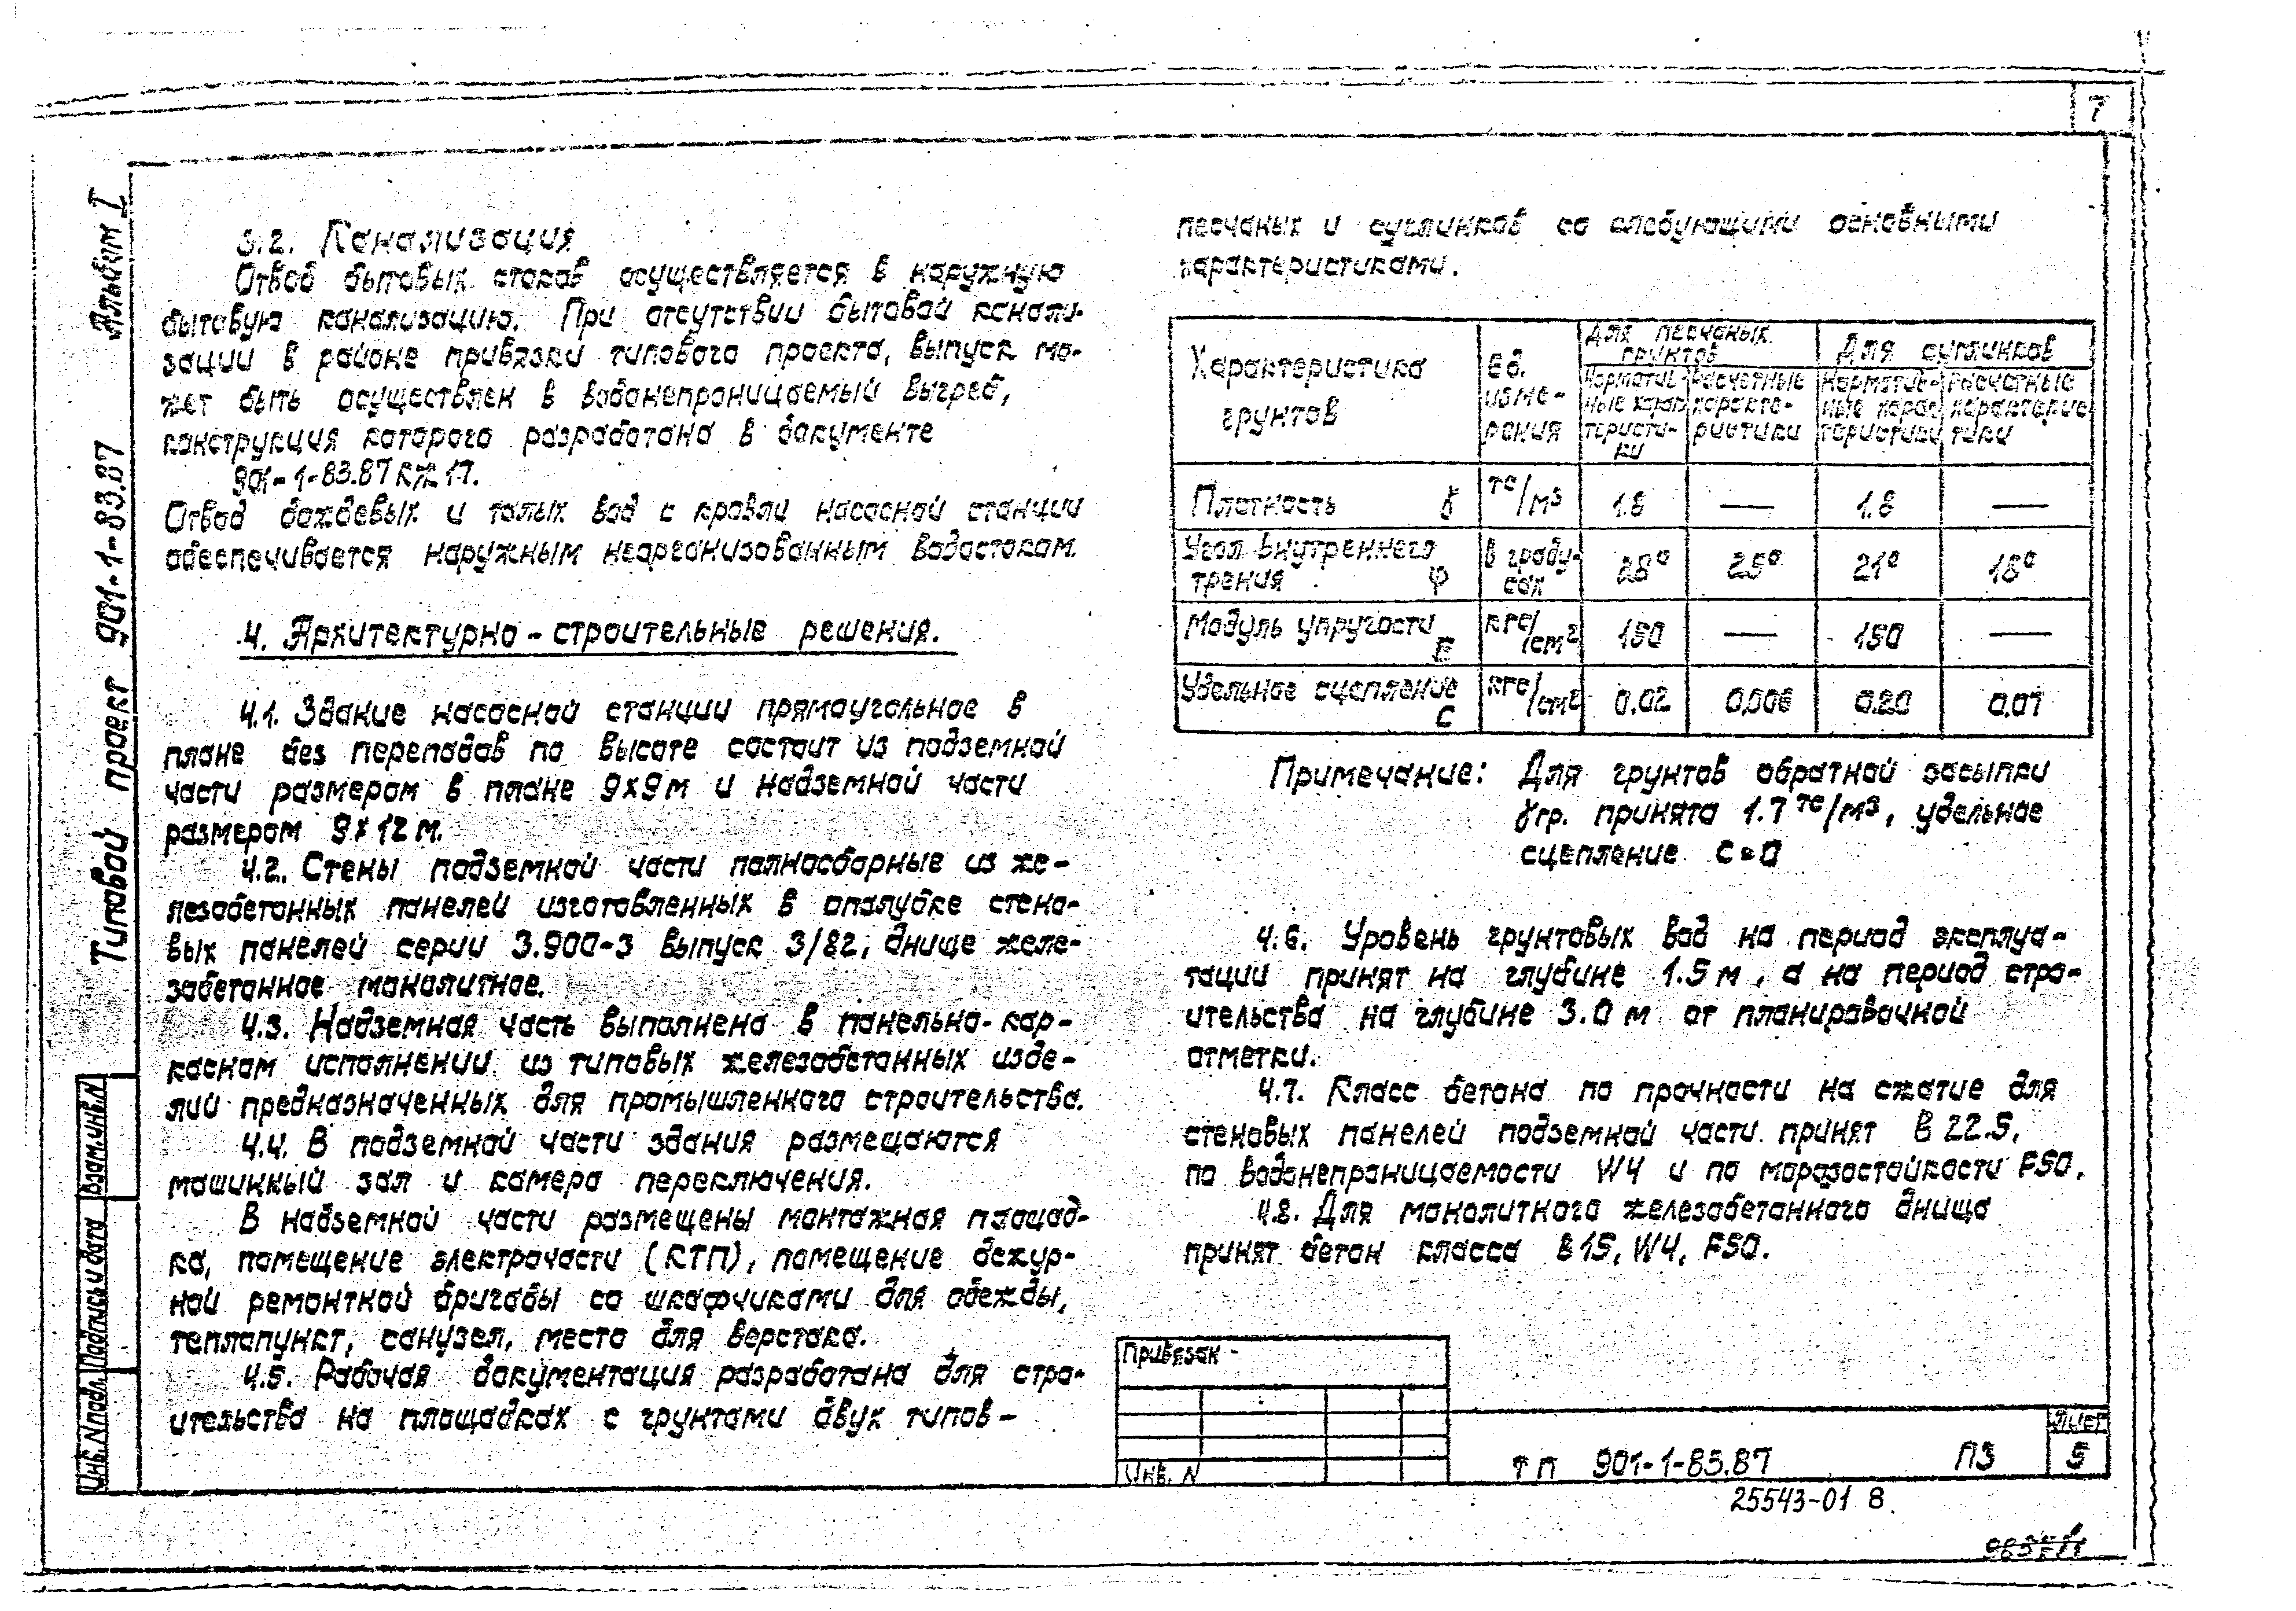 7
Альбом I
Типовой проект 901-1-83.87
3.2. Канализация
Отвод бытовых стоков осуществляется в наружную
бытовую канализацию. При отсутствии бытовой канали-
зации в районе привязки типового проекта, выпуск мо-
жет быть осуществлен в водонепроницаемый выгреб,
конструкция которого разработана в документе
901-1-83.87 КЖ 17.
Отвод дождевых и талых вод с кровли насосной станции
обеспечивается наружным неорганизованным водостоком.
4. Архитектурно-строительные решения.
4.1. Здание насосной станции прямоугольное в
плане без перепадов по высоте состоит из подземной
части размером в плане 9х9м и надземной части
размером 9х12м.
4.2. Стены подземной части полносборные из же-
лезобетонных панелей изготовленных в опалубке стено-
вых панелей серии 3.900-3 выпуск 3/82; днище желе-
зобетонное монолитное.
4.3. Надземная часть выполнена в панельно-кар-
касном исполнении из типовых железобетонных изде-
лий предназначенных для промышленного строительства.
4.4. В подземной части здания размещаются
машинный зал и камера переключения.
В надземной части размещены монтажная площад-
ка, помещение электрочасти (КТП), помещение дежур-
ной ремонтной бригады со шкафчиками для одежды,
теплопункт, санузел, место для верстака.
4.5. Рабочая документация разработана для стро-
ительства на площадках с грунтами двух типов -
песчаных и суглинков со следующими основными
характеристиками.
Характеристика грунтов
Ед. изме-рения
Для песчаных грунтов
Для суглинков
Норматив-ные харак теристи-ки
Расчетные характе-ристики
Норматив-ные харак теристики
Расчетные характерис тики
Плотность γ тс/м3 1.8 — 1.8 —
Угол внутреннего трения φ в граду-сах 28° 25° 21° 18°
Модуль упругости E кгс/см2 150 — 150 —
Удельное сцепление С кгс/см2 0.02 0,006 0.20 0,07
Примечание: Для грунтов обратной засыпки
γгр. принята 1.7 тс/м3, удельное
сцепление С=0
4.6. Уровень грунтовых вод на период эксплуа-
тации принят на глубине 1.5м, а на период стро-
ительства на глубине 3.0м от планировочной
отметки.
4.7. Класс бетона по прочности на сжатие для
стеновых панелей подземной части принят В 22.5,
по водонепроницаемости W4 и по морозостойкости F50.
4.8. Для монолитного железобетонного днища
принят бетон класса В15, W4, F50.
Взам.инв.N
Подпись и дата
Инв.N подл.
Привязан
Инв. N
ТП 901-1-83.87 ПЗ
Лист
5
25543-01 8